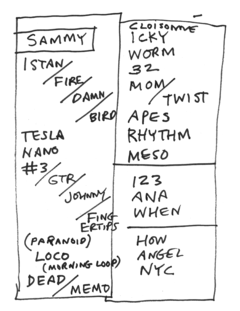 SAMMY
ISTAN
FIRE
DAMN
BIRD
TESLA
NANO
#3
GTR
JOHNNY
FING
ERTIPS
(PARANOID)
LOCO
(MORNING LOOP)
DEAD
MEMO
CLOISONNE
ICKY
WORM
32
MOM
TWIST
APES
RHYTHM
MESO
123
ANA
WHEN
HOW
ANGEL
NYC